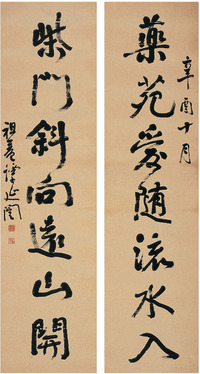 辛酉十月
藥苑愛隨流水入
柴門斜向遠山開
祖菴譚延闓